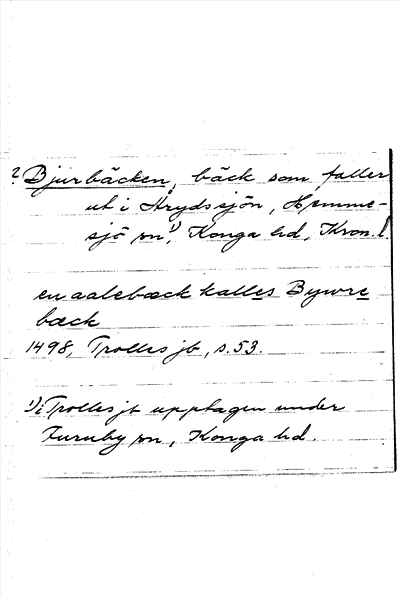 ? Bjurbäcken, bäck som faller
ut i Årydssjön, Hemme-
sjö sn¹⁾, Konga hd, Kron.l.
en aalebæck kalles Bywre
bæck
1498, Trolles jb, s. 53.
¹⁾ i Trolles jb upptagen under
Furuby sn, Konga hd.